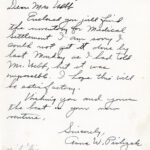 Dear Mrs Webb
Enclosed you will find
the inventory for Medical
Settlement I am sorry I
could not get it done by
last Monday as I had told
Mr. Webb, but it was
impossible I hope this will
be satisfactory.
Wishing you and yours
the best in your new
venture.
Sincerely,
Anna W.